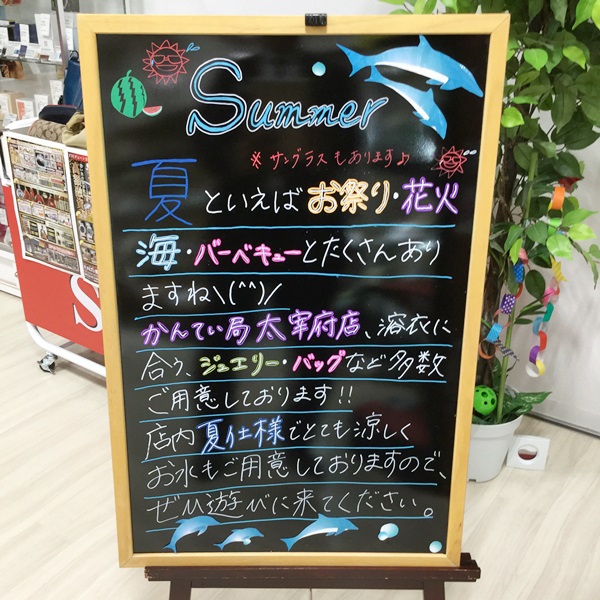 Summer
※サングラスもあります♪
夏といえばお祭り・花火
海・バーベキューとたくさんあり
ますね\(^^)/
かんてい局太宰府店、浴衣に
合う、ジュエリー・バッグなど多数
ご用意しております!!
店内夏仕様でとても涼しく
お水もご用意しておりますので、
ぜひ遊びに来てください。
S